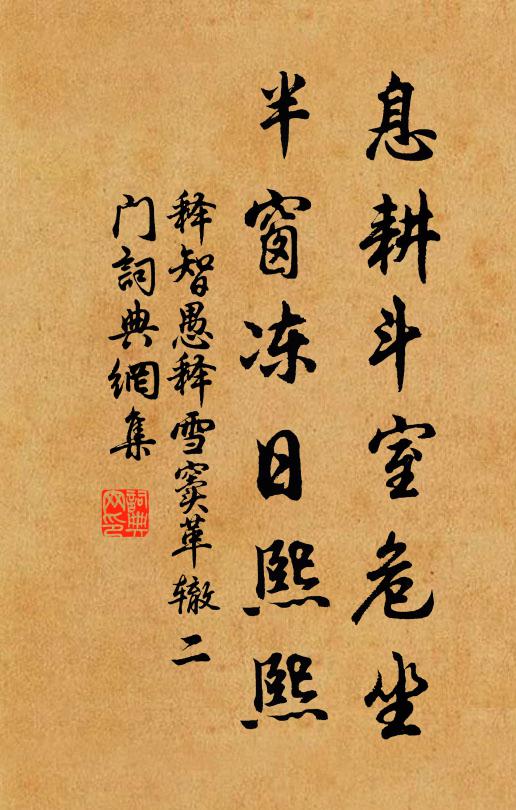 息耕斗室危坐
半窗冻日熙熙
释智愚释雪窦革辙二
门词典網集
詞典
网印